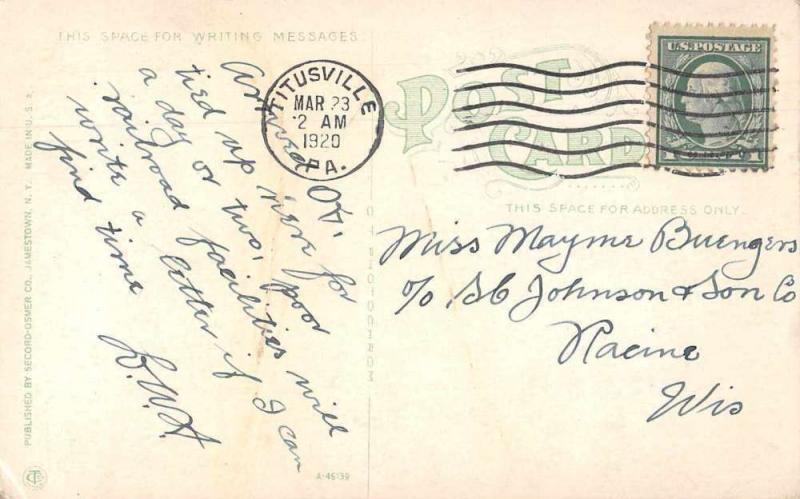 THIS SPACE FOR WRITING MESSAGES
Arrived OK.
tied up here for
a day or two, poor
railroad facilities will
write a letter if I can
find time
D.W.H
TITUSVILLE
MAR 23
2 AM
1920
PA.
U.S. POSTAGE
POST CARD
THIS SPACE FOR ADDRESS ONLY.
Miss Mayme Buengers
c/o SC Johnson & Son Co
Racine
Wis
PUBLISHED BY SECORD-OSMER CO., JAMESTOWN, N. Y. MADE IN U. S. A.
A-46139